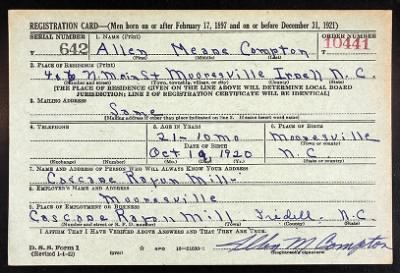 REGISTRATION CARD—(Men born on or after February 17, 1897 and on or before December 31, 1921)
SERIAL NUMBER 1. NAME (Print) ORDER NUMBER
T 642 Allen Meane Compton T 10441
(First) (Middle) (Last)
2. PLACE OF RESIDENCE (Print)
N. Main St Mooresville N. C.
(Number and street) (Town, township, village, or city) (County) (State)
[THE PLACE OF RESIDENCE GIVEN ON THE LINE ABOVE WILL DETERMINE LOCAL BOARD
JURISDICTION; LINE 2 OF REGISTRATION CERTIFICATE WILL BE IDENTICAL]
3. MAILING ADDRESS
Same
[Mailing address if other than place indicated on line 2. If same insert word same]
4. TELEPHONE 5. AGE IN YEARS 6. PLACE OF BIRTH
21-10 mo Mooresville
DATE OF BIRTH (Town or county)
Oct 1920 N. C.
(Exchange) (Number) (Mo.) (Day) (Yr.) (State or country)
7. NAME AND ADDRESS OF PERSON WHO WILL ALWAYS KNOW YOUR ADDRESS
Cascade Rayon Mill
8. EMPLOYER'S NAME AND ADDRESS
Mooresville
9. PLACE OF EMPLOYMENT OR BUSINESS
Cascade Rayon Mill Iredell N.C.
(Number and street or R. F. D. number) (Town) (County) (State)
I AFFIRM THAT I HAVE VERIFIED ABOVE ANSWERS AND THAT THEY ARE TRUE.
D. S. S. Form 1
(Revised 1-1-42) (over) Allen M Compton
(Registrant's signature)